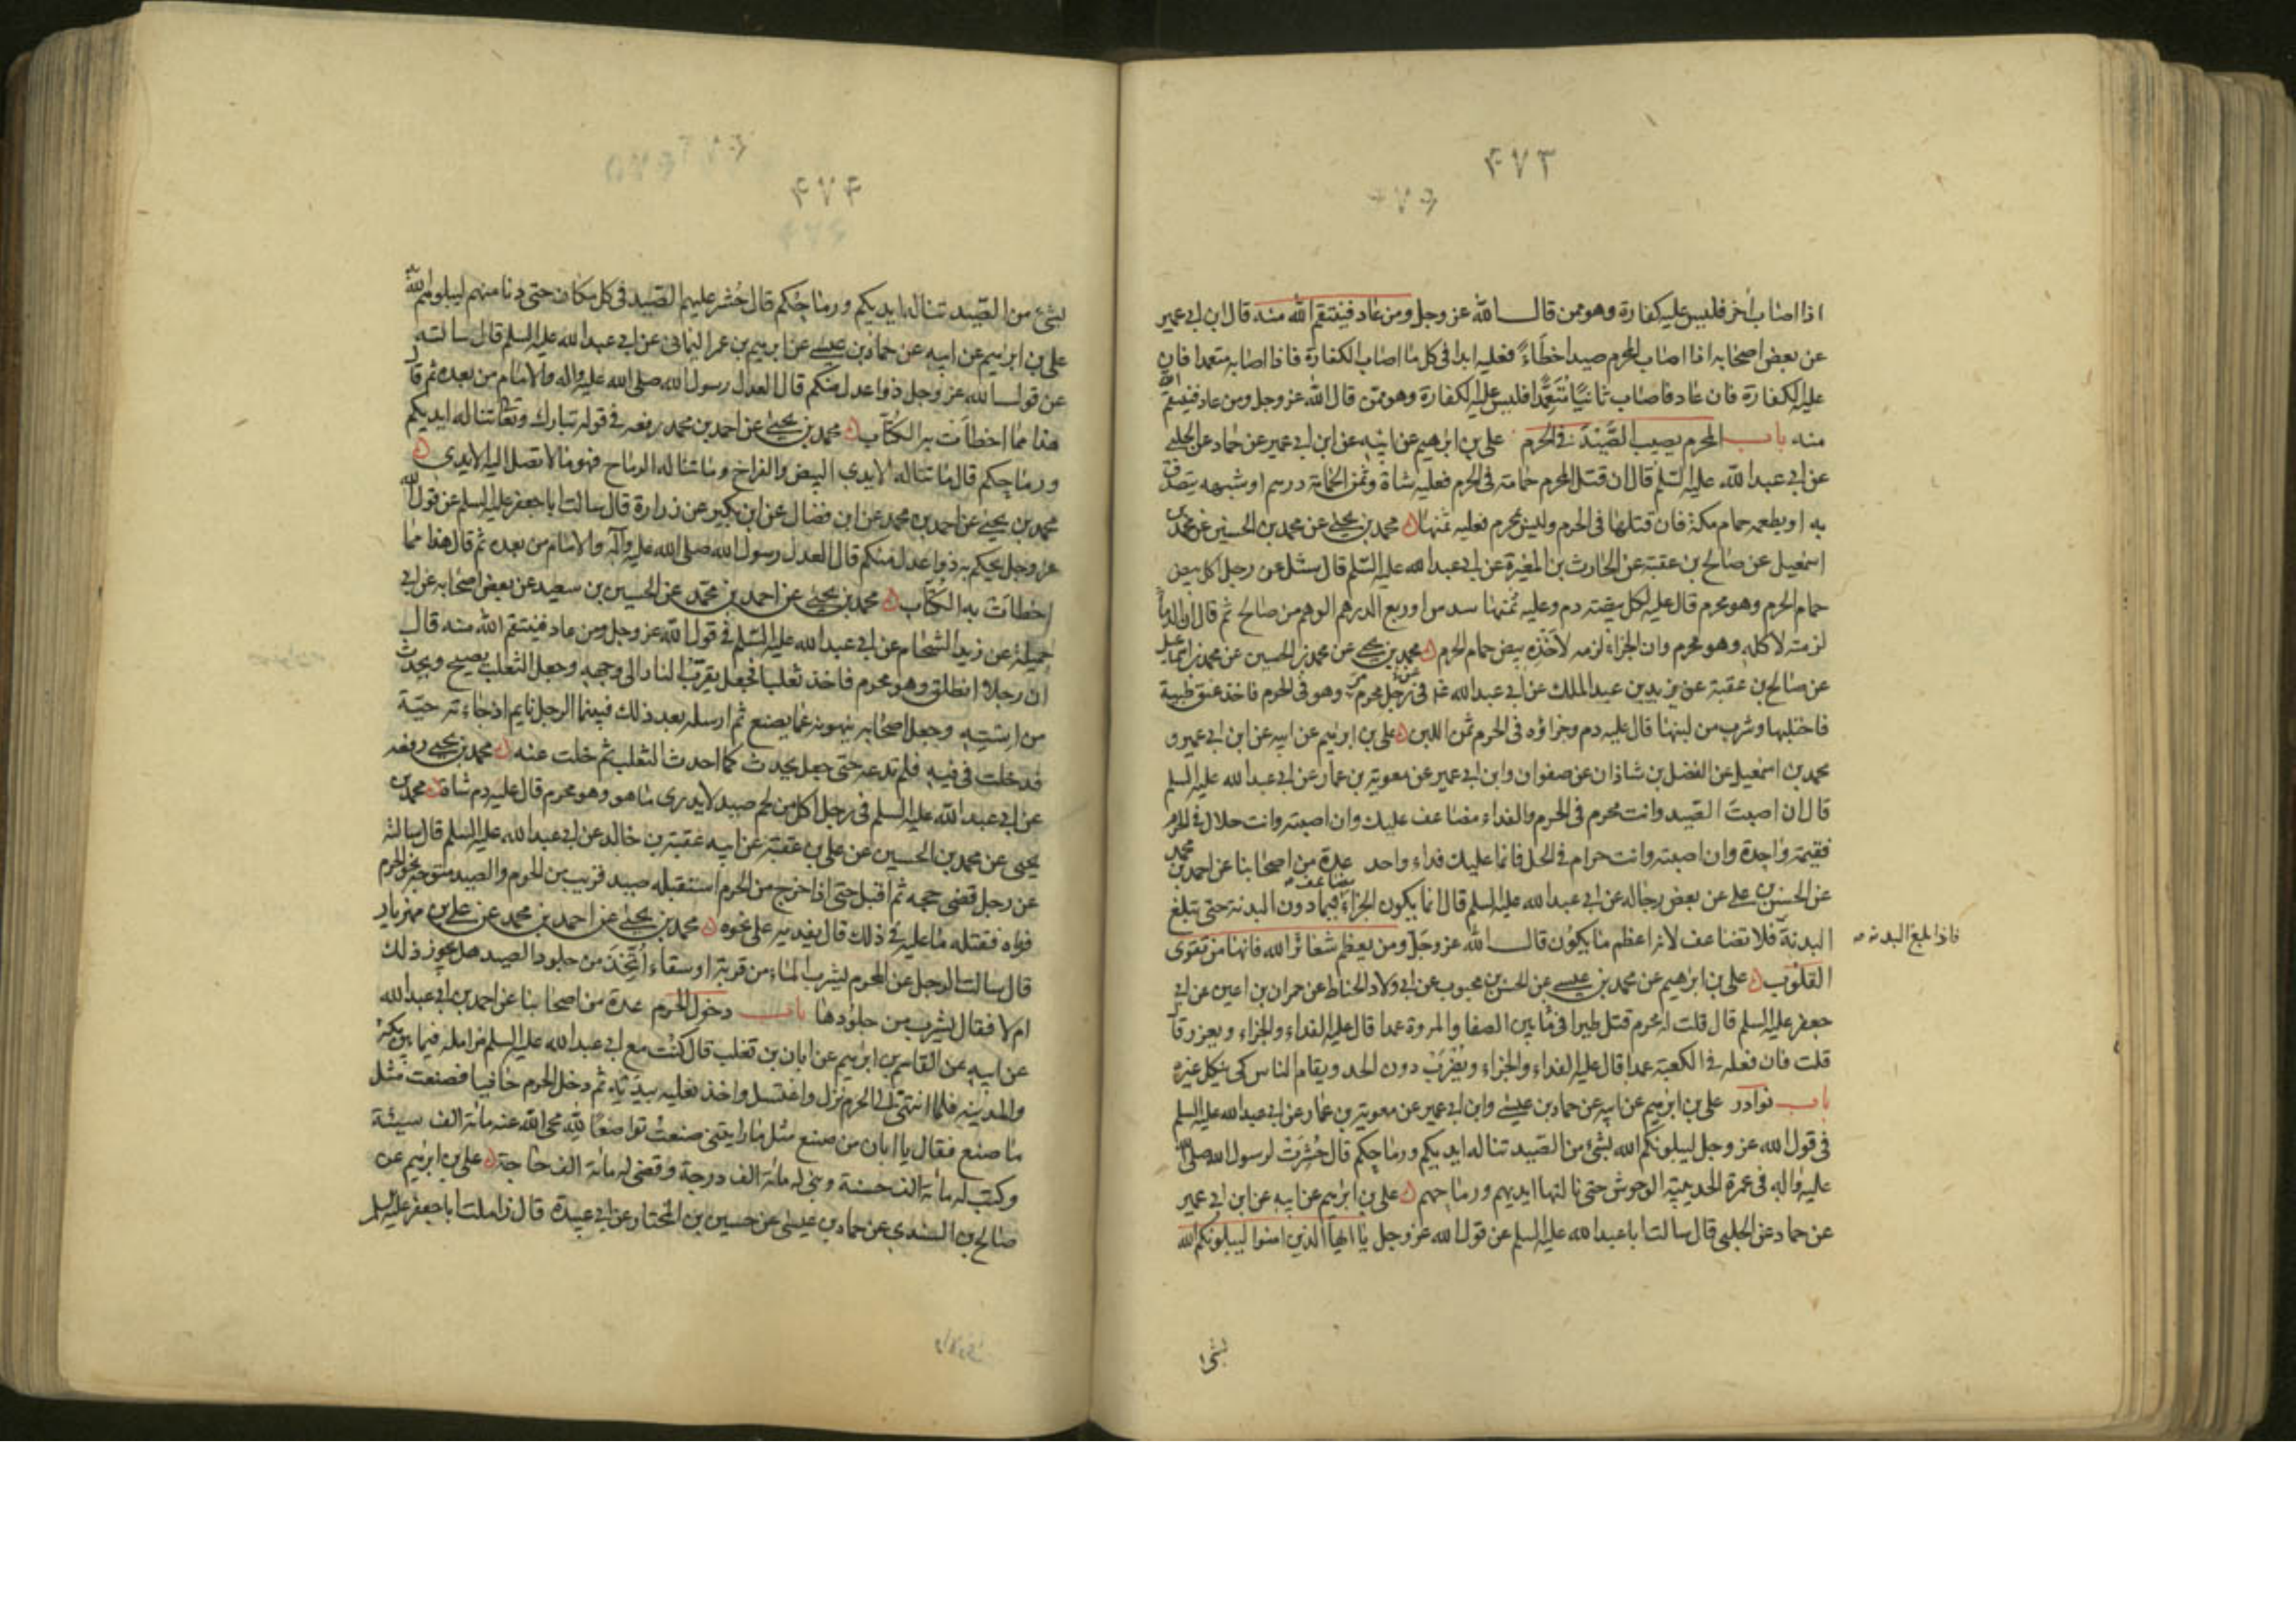 ۴۷۳
اذا اصاب أخر فليس عليه كفارة وهو ممن قال الله عز وجل ومن عاد فينتقم الله منه قال ابن ابي عمير
عن بعض اصحابه اذا اصاب المحرم صيدا خطاءً فعليه ابدا في كل ما اصاب الكفارة فاذا اصابه متعمدا فان
عليه الكفارة فان عاد فاصاب ثانيًا مُتَعَمِّدًا فليس عليه الكفارة وهو ممن قال الله عز وجل ومن عاد فينتقم الله
منه باب المحرم يصيب الصَّيْدَ في الحرم علي بن ابرهيم عن ابيه عن ابن ابي عمير عن حماد عن الحلبي
عن ابي عبد الله عليه السّلم قال ان قتل المحرم حمامة في الحرم فعليه شاة وثمن الحمامة درهم او شبهه يتصدق
به او يطعمه حمام مكة فان قتلها في الحرم وليس بمحرم فعليه ثمنها محمد بن يحيى عن محمد بن الحسين عن محمد بن
اسمعيل عن صالح بن عقبة عن الحارث بن المغيرة عن ابي عبد الله عليه السّلم قال سئل عن رجل اكل بيض
حمام الحرم وهو محرم قال عليه لكل بيضة دم وعليه ثمنها سدس او ربع الدرهم الوهم من صالح ثم قال ان الدماء
لزمته لاكله وهو محرم وان الجزاء لزمه لاَخْذِه بيض حمام الحرم محمد بن يحيى عن محمد بن الحسين عن محمد بن اسماعيل
عن صالح بن عقبة عن يزيد بن عبد الملك عن ابي عبد الله ع في رجل محرم مرّ وهو في الحرم فاخذ عنق ظبية
فاحتلبها وشرب من لبنها قال عليه دم وجزاؤه في الحرم ثمن اللبن علي بن ابرهيم عن ابيه عن ابن ابي عمير و
محمد بن اسمعيل عن الفضل بن شاذان عن صفوان وابن ابي عمير عن معوية بن عمار عن ابي عبد الله عليه السلم
قال ان اصبتَ الصّيد وانت محرم في الحرم والفداء مضاعف عليك وان اصبته وانت حلال في الحرم
فقيمة واحدة وان اصبته وانت حرام في الحل فانما عليك فداء واحد عدة من اصحابنا عن احمد بن محمد
عن الحسن بن علي عن بعض رجاله عن ابي عبد الله عليه السلم قال انما يكون الجزاء يضاعف فيما دون البدنة حتى تبلغ
البدنة فلا تضاعف لانه اعظم ما يكون قال الله عز وجل ومن يعظم شعائر الله فانها من تقوى
فاذا بلغ البدنة
القلوب علي بن ابرهيم عن محمد بن عيسى عن الحسن بن محبوب عن ابي ولاد الحناط عن حمران بن اعين عن ابي
جعفر عليه السلم قال قلت له محرم قتل طيرا في ما بين الصفا والمروة عمدا قال عليه الفداء والجزاء ويعزر قال
قلت فان فعله في الكعبة عمدا قال عليه الفداء والجزاء ويُضْرَبُ دون الحد ويقام للناس كي ينكل غيره
باب نوادر علي بن ابرهيم عن ابيه عن حماد بن عيسى وابن ابي عمير عن معوية بن عمار عن ابي عبد الله عليه السلم
في قول الله عز وجل ليبلونكم الله بشئ من الصّيد تناله ايديكم ورماحكم قال حُشِرَتْ لرسول الله صلى الله
عليه واله في عمرة الحديبية الوحوش حتى نالتها ايديهم ورماحهم علي بن ابرهيم عن ابيه عن ابن ابي عمير
عن حماد عن الحلبي قال سالت ابا عبد الله عليه السلم عن قول الله عز وجل يا ايها الذين امنوا ليبلونكم الله
بشئ
۴۷۴
بشئ من الصّيد تناله ايديكم ورماحكم قال حُشر عليهم الصّيد في كل مكان حتى دنا منهم ليبلوهم الله به
علي بن ابرهيم عن ابيه عن حماد بن عيسى عن ابرهيم بن عمر اليماني عن ابي عبد الله عليه السلم قال سالته
عن قول الله عز وجل ذوا عدل منكم قال العدل رسول الله صلى الله عليه واله والامام من بعده ثم قال
هذا مما اخطات به الكُتّاب محمد بن يحيى عن احمد بن محمد رفعه في قوله تبارك وتعالى تناله ايديكم
ورماحكم قال ما تناله الايدي البيض والفراخ وما تناله الرماح فهو ما لا تصل اليه الايدي
محمد بن يحيى عن احمد بن محمد عن ابن فضال عن ابن بكير عن زرارة قال سالت ابا جعفر عليه السلم عن قول الله
عز وجل يحكم به ذوا عدل منكم قال العدل رسول الله صلى الله عليه وآله والامام من بعده ثم قال هذا مما
اخطاَت به الكُتّاب محمد بن يحيى عن احمد بن محمد عن الحسين بن سعيد عن بعض اصحابه عن ابي
جميلة عن زيد الشحّام عن ابي عبد الله عليه السّلم في قول الله عز وجل ومن عاد فينتقم الله منه قال
ان رجلا انطلق وهو محرم فاخذ ثعلبا فجعل يقرّب النار الى وجهه وجعل الثعلب يصيح ويحدث
من استه وجعل اصحابه ينهونه عما يصنع ثم ارسله بعد ذلك فبينما الرجل نايم اذ جاءته حيّة
فدخلت في فيه فلم تدعه حتى جعل يحدث كما احدث الثعلب ثم خلت عنه محمد بن يحيى رفعه
عن ابي عبد الله عليه السلم في رجل اكل من لحم صيد لا يدرى ما هو وهو محرم قال عليه دم شاة محمد بن
يحيى عن محمد بن الحسين عن علي بن عقبة عن ابيه عقبة بن خالد عن ابي عبد الله عليه السلم قال سالته
عن رجل قضى حجه ثم اقبل حتى اذا خرج من الحرم استقبله صيد قريب من الحرم والصيد متوجه نحو الحرم
فرماه فقتله ما عليه في ذلك قال يفديه على نحوه محمد بن يحيى عن احمد بن محمد عن علي بن مهزيار
قال سالت الرجل عن المحرم يشرب الماء من قربة او سقاء اُتّخذ من جلود الصيد هل يجوز ذلك
ام لا فقال يشرب من جلودها باب دخول الحرم عدة من اصحابنا عن احمد بن ابي عبد الله
عن ابيه عن القاسم بن ابرهيم عن ابان بن تغلب قال كنت مع ابي عبد الله عليه السلم مزامله فيما بين مكة
والمدينة فلما انتهى الى الحرم نزل واغتسل واخذ نعليه بيديه ثم دخل الحرم حافيا فصنعت مثل
ما صنع فقال يا ابان من صنع مثل ما رايتني صنعت تواضعًا لله محى الله عنه مائة الف سيئة
وكتب له مائة الف حسنة وبنى له مائة الف درجة وقضى له مائة الف حاجة علي بن ابرهيم عن
صالح بن السندي عن حماد بن عيسى عن حسين بن المختار عن ابي عبيدة قال زاملت ابا جعفر عليه السلم